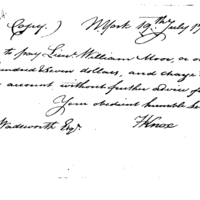 Copy.) N York 19th July 17
to pay Lieut. William Moor, or o
hundred & seven dollars, and charge
account without further advice f
Your obedient humble se
Wadsworth Esqr. HKnox